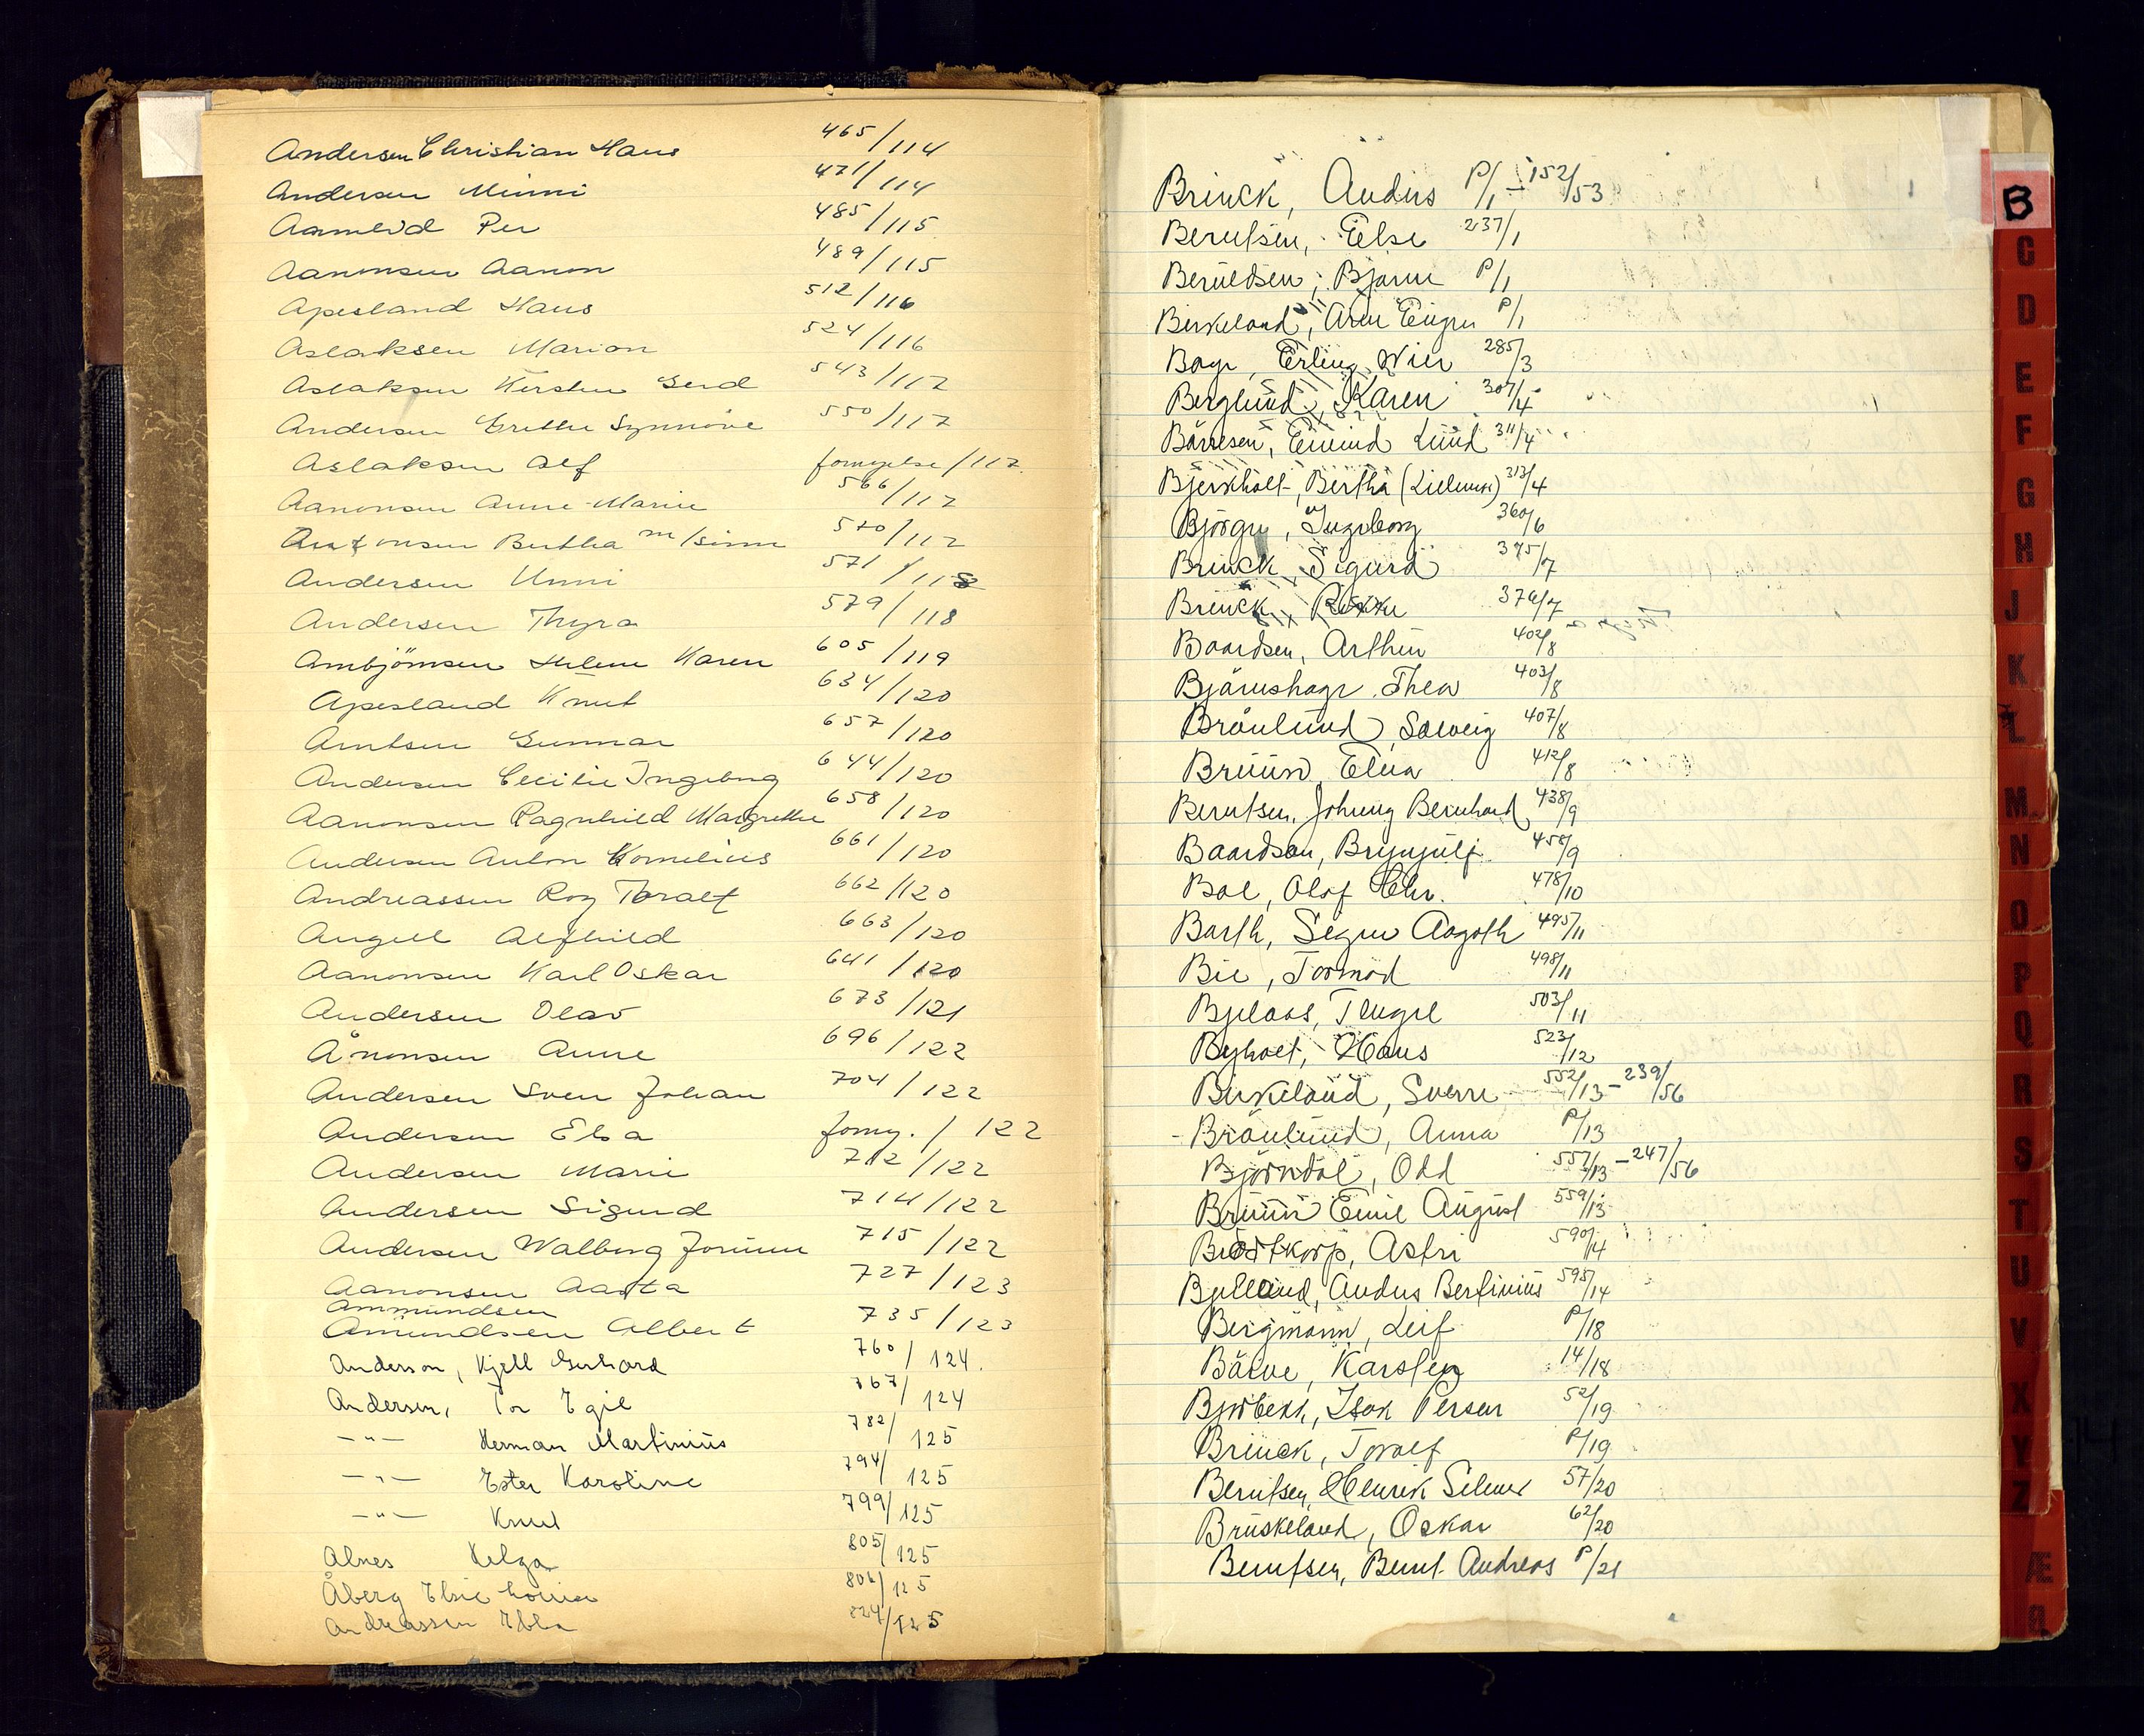 Andersen Christian Hans 465/114
Andersen Minni 471/114
Aamlid Per 485/115
Aanonsen Aanon 489/115
Apesland Hans 512/116
Aslaksen Marion 524/116
Aslaksen Kirsten Gerd 543/117
Andersen Grethe Synnöve 550/117
Aslaksen Alf fornyelse/117
Aanonsen Anne-Marie 566/117
Bertha m/sönn 570/117
Andersen Unni 571/118
Andersen Thyra 579/118
Arnbjörnsen Helene Karen 605/119
Apesland Knut 634/120
Arntsen Gunnar 657/120
Andersen Cecilie Ingeborg 644/120
Aanonsen Ragnhild Margrethe 658/120
Andersen Anton Kornelius 661/120
Andreassen Roy Toralf 662/120
Angell Alfhild 663/120
Aanonsen Karl Oskar 641/120
Andersen Olav 673/121
Ånonsen Anne 696/122
Andersen Sven Johan 704/122
Andersen Elsa forny./122
Andersen Marie 712/122
Andersen Sigurd 714/122
Andersen Walborg Jorunn 715/122
Aanonsen Aasta 727/123
Ammundsen
Amundsen Albert 735/123
Anderson, Kjell Gerhard 760/124.
Andersen, Tor Egil 767/124
—"— Herman Martinius 782/125
—"— Ester Karoline 794/125
—"— Knut 799/125
Alnes Helga 805/125
Åberg Elsie Louise 806/125
Andreassen Ebba 824/125
Brinck, Anders P/1 - 152/53
Berntsen, Else 237/1
Berntdsen, Bjarne P/1
Birkeland, Arne Einar P/1
Boye, Erling Wier 285/3
Berglund, Karen 307/4
Börresen, Eivind Lund 311/4
Bjerkholt, Bertha 313/4
Björge, Ingeborg 360/6
Brinck, Sigurd 375/7
Brinck, 376/7
Baardsen, Arthur 402/8
Bjärushagr, Thea 403/8
Bråulund, Solveig 407/8
Bruun, Elna 412/8
Berntsen, Johnny Bernhard 438/9
Baardson, Brynjulf 458/9
Boe, Olaf Chr. 478/10
Barth, Signe Aagoth 495/11
Bie, Tormod 498/11
Bjelaas, Tengel 503/11
Byholt, Hans 523/12
Birkeland, Sverre 552/13 - 239/56
- Bråulund, Anna P/13
Björndal, Odd 557/13 - 247/56
Bruun Emil August 559/13
Brodtkorp, Astri 590/14
Bjelland, Anders Bertinius 595/14
Bergmann, Leif P/18
Bårve, Karsten 14/18
Bjorbekk, Isak Person 52/19
Brinck, Toralf P/19
Berntsen, Henrik Selmer 57/20
Bruskeland, Oskar 62/20
Berntsen, Bernt Andreas P/21
B
C
D
E
F
G
H
J
K
L
M
N
O
P
Q
R
S
T
U
V
X
Y
Z
Æ
Ø